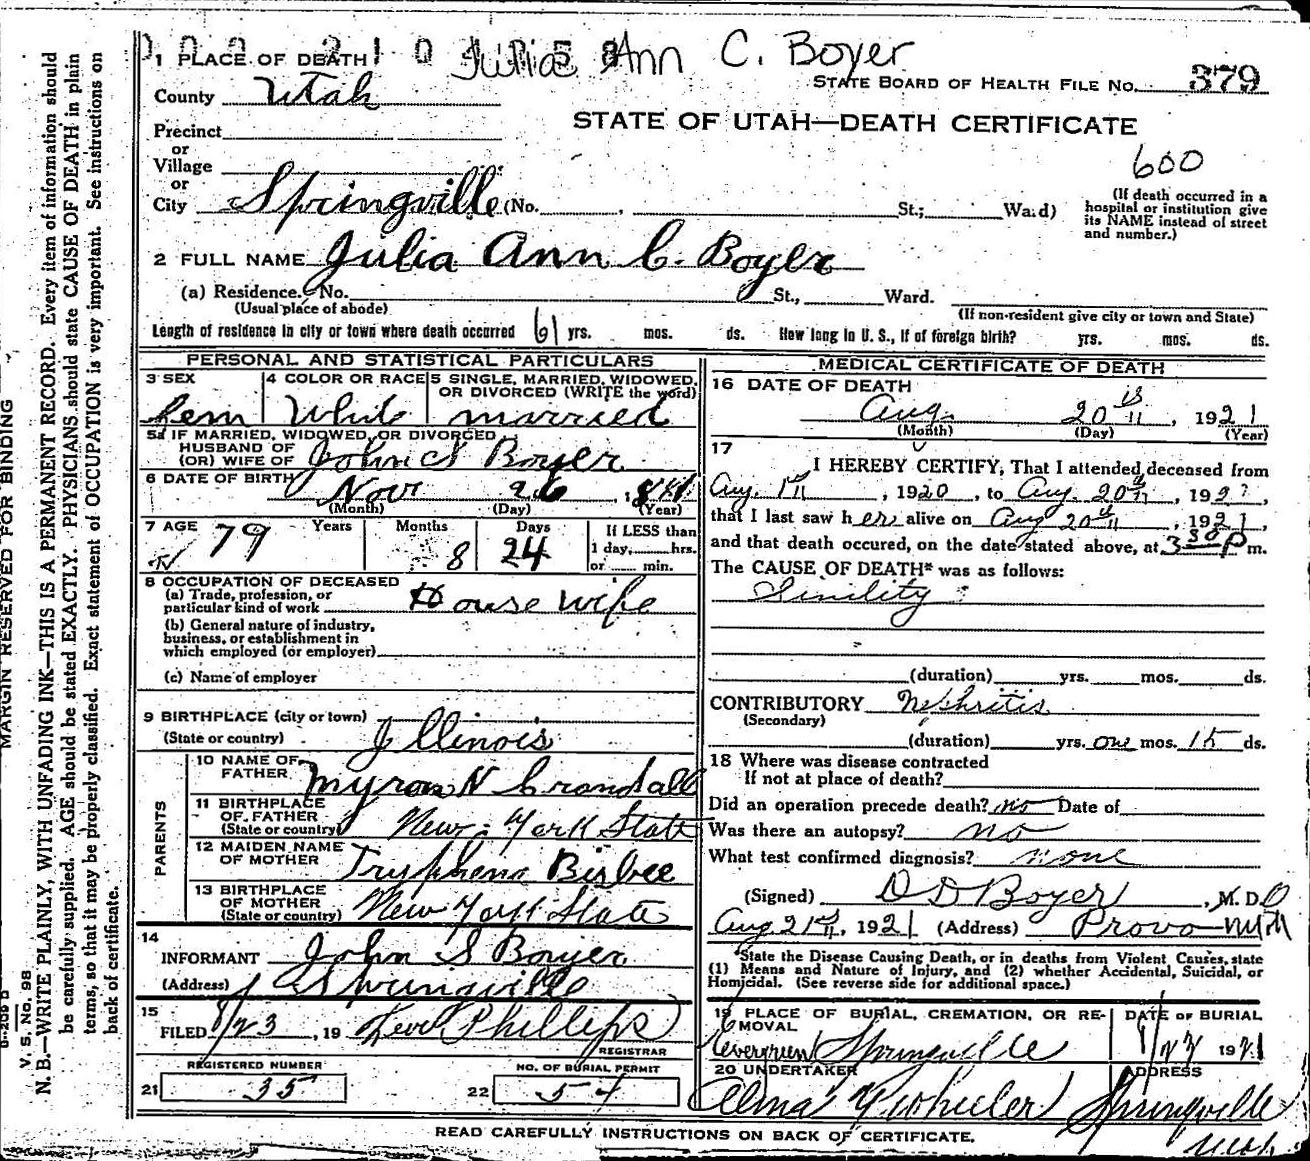 Julia Ann C. Boyer
1 PLACE OF DEATH
STATE BOARD OF HEALTH FILE No. 379
County Utah
STATE OF UTAH—DEATH CERTIFICATE
Precinct
or
Village
600
or
City Springville (No. , St.; Ward)
(If death occurred in a
hospital or institution give
its NAME instead of street
and number.)
2 FULL NAME Julia Ann C. Boyer
(a) Residence. No. St., Ward.
(Usual place of abode)
(If non-resident give city or town and State)
Length of residence in city or town where death occurred 61 yrs. mos. ds. How long in U. S., if of foreign birth? yrs. mos. ds.
PERSONAL AND STATISTICAL PARTICULARS
3 SEX
4 COLOR OR RACE
5 SINGLE, MARRIED, WIDOWED,
OR DIVORCED (WRITE the word)
Fem White married
5a IF MARRIED, WIDOWED, OR DIVORCED
HUSBAND OF
(OR) WIFE OF John S Boyer
6 DATE OF BIRTH Nov 26, 1841
(Month) (Day) (Year)
7 AGE Years Months Days
79 8 24
If LESS than
1 day, hrs.
or min.
8 OCCUPATION OF DECEASED
(a) Trade, profession, or
particular kind of work House wife
(b) General nature of industry,
business, or establishment in
which employed (or employer)
(c) Name of employer
9 BIRTHPLACE (city or town)
(State or country) Illinois
PARENTS
10 NAME OF
FATHER Myron N Crandall
11 BIRTHPLACE
OF FATHER
(State or country) New York State
12 MAIDEN NAME
OF MOTHER Tryphena Bisbee
13 BIRTHPLACE
OF MOTHER
(State or country) New York State
14
INFORMANT John S Boyer
(Address) Springville
15
FILED 8/23, 19 Levi Phillips
REGISTRAR
REGISTERED NUMBER
21 35
NO. OF BURIAL PERMIT
22 54
MEDICAL CERTIFICATE OF DEATH
16 DATE OF DEATH
Aug 20, 1921
(Month) (Day) (Year)
17
I HEREBY CERTIFY, That I attended deceased from
Aug. 1st, 1920, to Aug. 20th, 192
that I last saw her alive on Aug 20th, 1921,
and that death occured, on the date stated above, at 3 30 P m.
The CAUSE OF DEATH* was as follows:
Sinility
(duration) yrs. mos. ds.
CONTRIBUTORY Nephritis
(Secondary)
(duration) yrs. one mos. 15 ds.
18 Where was disease contracted
If not at place of death?
Did an operation precede death? no Date of
Was there an autopsy? no
What test confirmed diagnosis? none
(Signed) D D Boyer, M. D
Aug 21st, 1921 (Address) Provo Utah
*State the Disease Causing Death, or in deaths from Violent Causes, state
(1) Means and Nature of Injury, and (2) whether Accidental, Suicidal, or
Homicidal. (See reverse side for additional space.)
19 PLACE OF BURIAL, CREMATION, OR RE-
MOVAL
Evergreen Springville
DATE OF BURIAL
8/23 1921
20 UNDERTAKER
ADDRESS
Alma Wheeler Springville
Utah
READ CAREFULLY INSTRUCTIONS ON BACK OF CERTIFICATE.
MARGIN RESERVED FOR BINDING
V. S. No. 98
N. B.—WRITE PLAINLY, WITH UNFADING INK—THIS IS A PERMANENT RECORD. Every item of information should
be carefully supplied. AGE should be stated EXACTLY. PHYSICIANS should state CAUSE OF DEATH in plain
terms, so that it may be properly classified. Exact statement of OCCUPATION is very important. See instructions on
back of certificate.